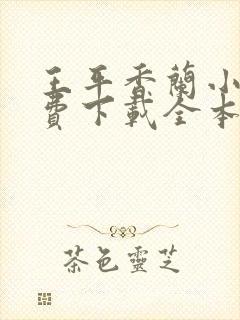 王平香蘭小
費下載全本
茶色靈芝